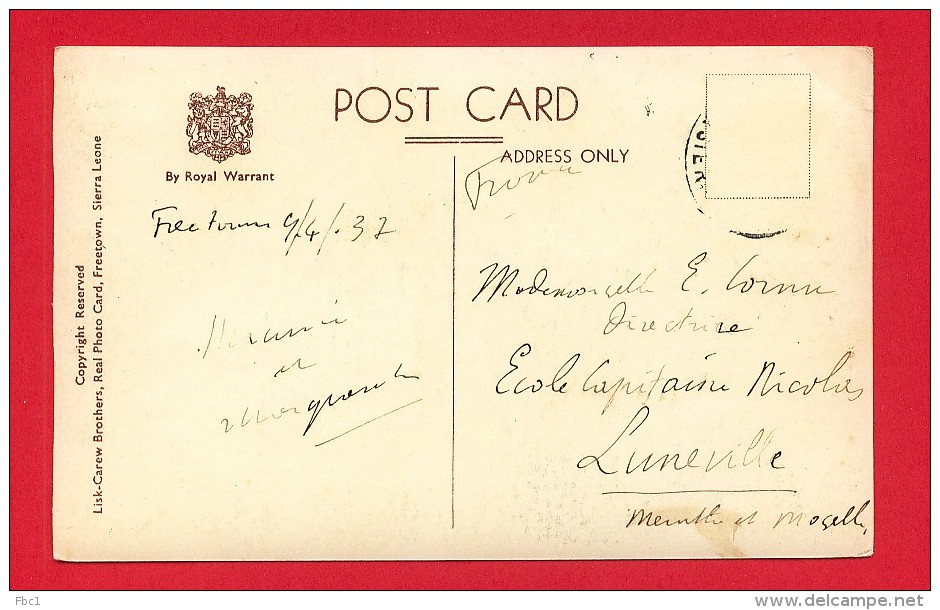 POST CARD
By Royal Warrant
ADDRESS ONLY
Copyright Reserved
Lisk-Carew Brothers, Real Photo Card, Freetown, Sierra Leone
Freetown 9/4/.37
et
Mademoiselle E. Cornu
Directrice
Ecole Capitaine Nicolas
Luneville
Meurthe et Moselle
Fbc1
delcampe.net